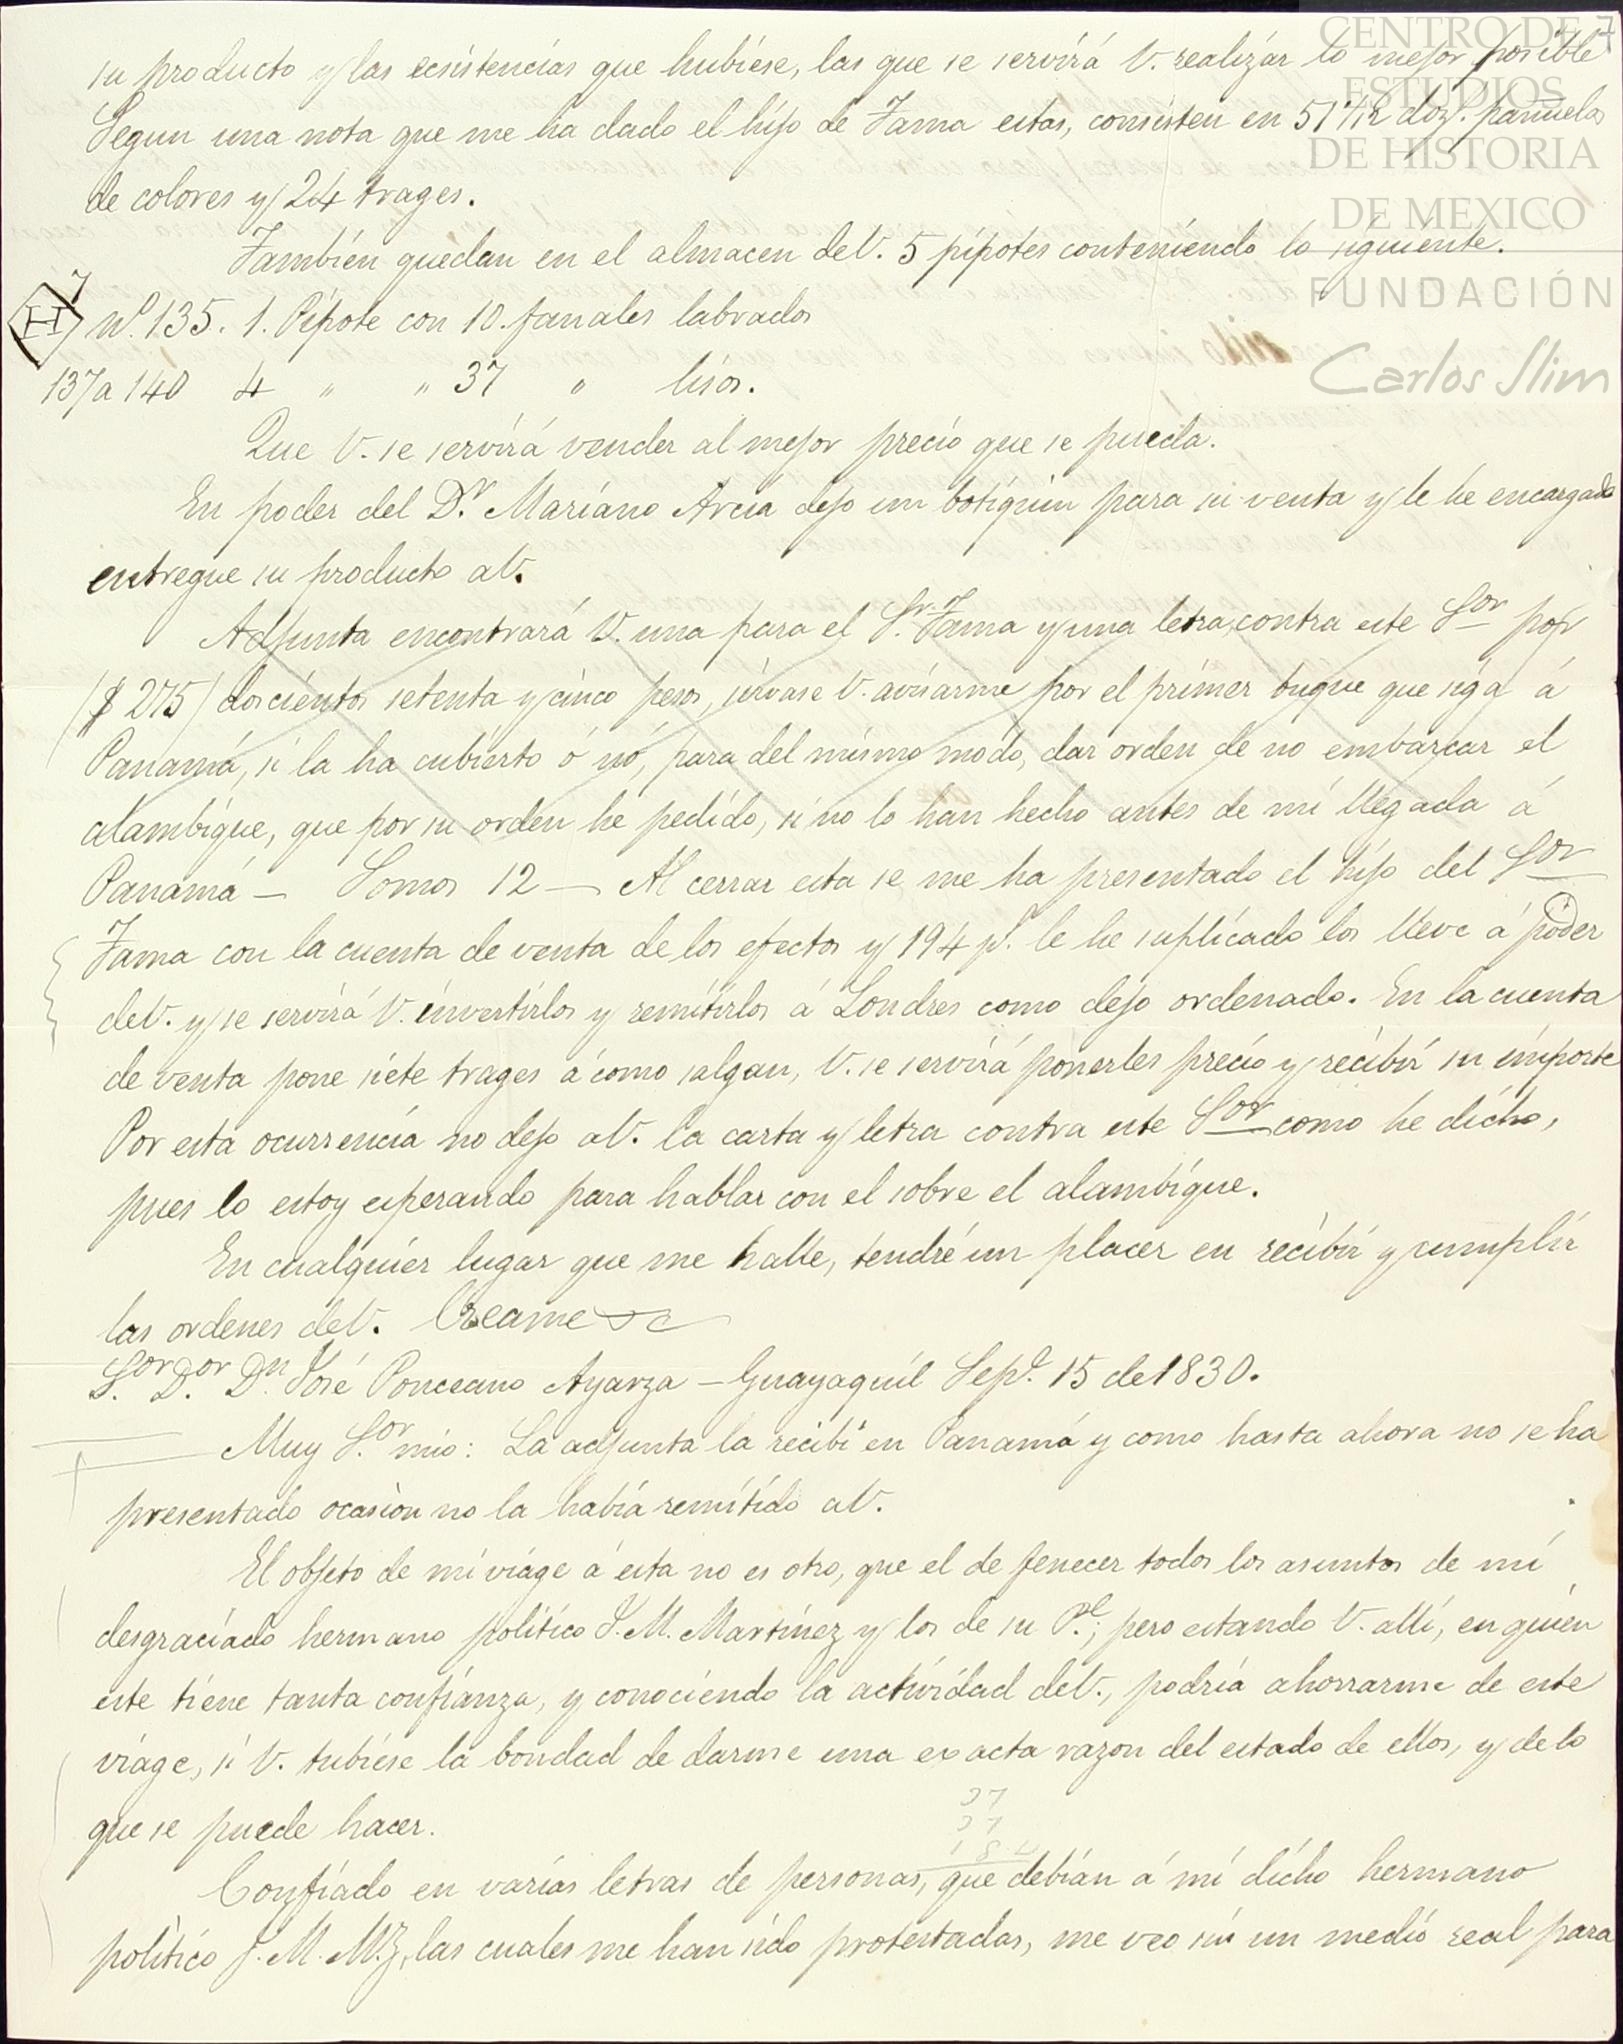 CENTRO DE
ESTUDIOS
DE HISTORIA
DE MEXICO
FUNDACIÓN
Carlos Slim
7
su producto y las ecsistencias que hubiese, las que se servirá V. realizar lo mejor posible
Segun una nota que me ha dado el hijo de Tama estas, consisten en 51 doz. pañuelos
de colores y 24 trages.
Tambien quedan en el almacen de V. 5 pipotes conteniendo lo siguiente.
H nº. 135. 1. Pipote con 10. fanales labrados
137 a 140 4 " " 37 " lisos.
Que V. se servirá vender al mejor precio que se pueda.
En poder del Dr. Mariano Arcia dejo un botiquin para su venta y le he encargado
entregue su producto a V.
Adjunta encontrará V. una para el Sr. Tama y una letra contra este Sor por
($ 275) doscientos setenta y cinco pesos, sirvase V. avisarme por el primer buque que siga á
Panamá, si la ha cubierto ó nó, para del mismo modo, dar orden de no embarcar el
alambique, que por su orden he pedido, si no lo han hecho antes de mi llegada á
Panamá — Somos 12 — Al cerrar esta se me ha presentado el hijo del Sor
Tama con la cuenta de venta de los efectos y 194 ps. le he suplicado los lleve á poder
de V. y se servirá V. invertirlos y remitirlos á Londres como dejo ordenado. En la cuenta
de venta pone siete trages á como salgan, V. se servirá ponerles precio y recibir su importe
Por esta ocurrencia no dejo a V. la carta y letra contra este Sor como he dicho,
pues lo estoy esperando para hablar con el sobre el alambique.
En cualquier lugar que me halle, tendré un placer en recibir y cumplir
las ordenes de V. Creame &c
S.or D.or Dn José Ponceano Ayarza — Guayaquil Sepe. 15 de 1830.
Muy S.or mio: La adjunta la recibi en Panamá y como hasta ahora no se ha
presentado ocasion no la habia remitido a V.
El objeto de mi viage á esta no es otro, que el de fenecer todos los asuntos de mi
desgraciado hermano politico J. M. Martinez y los de su Pe.; pero estando V. alli, en quien
este tiene tanta confianza, y conociendo la actividad de V., podria ahorrarme de este
viage, si V. tubiese la bondad de darme una exacta razon del estado de ellos, y de lo
que se puede hacer.
Confiado en varias letras de personas, que debian á mi dicho hermano
politico J. M. Mz, las cuales me han sido protestadas, me veo sin un medio real para